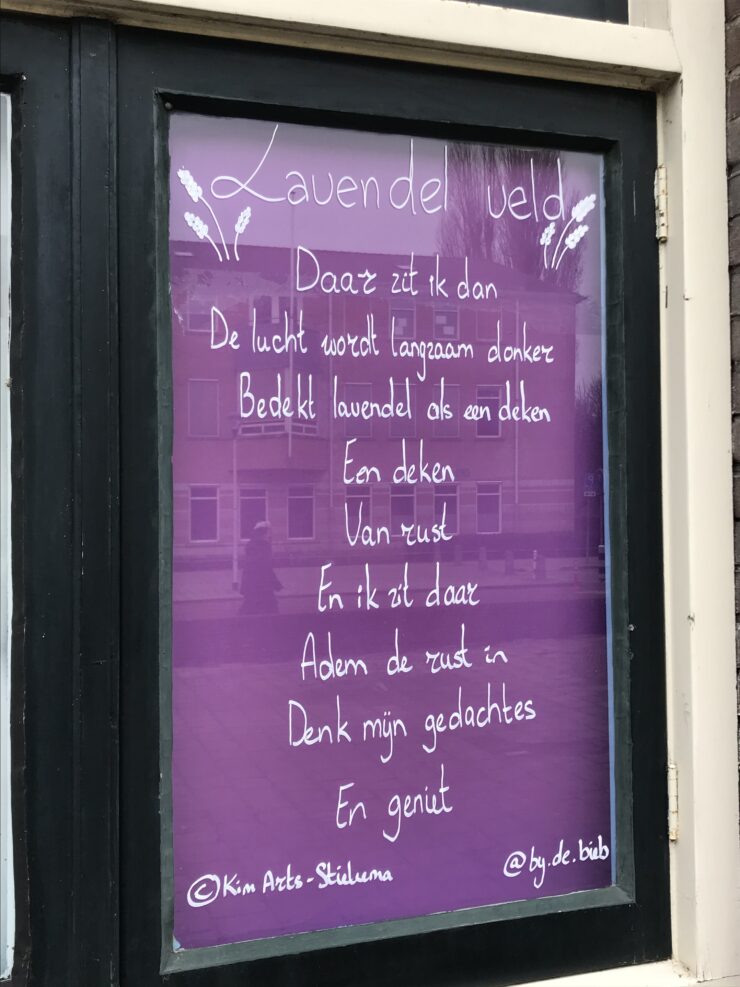 Lavendel veld
Daar zit ik dan
De lucht wordt langzaam donker
Bedekt lavendel als een deken
Een deken
Van rust
En ik zit daar
Adem de rust in
Denk mijn gedachtes
En geniet
© Kim Arts-Stielema
@by.de.bieb